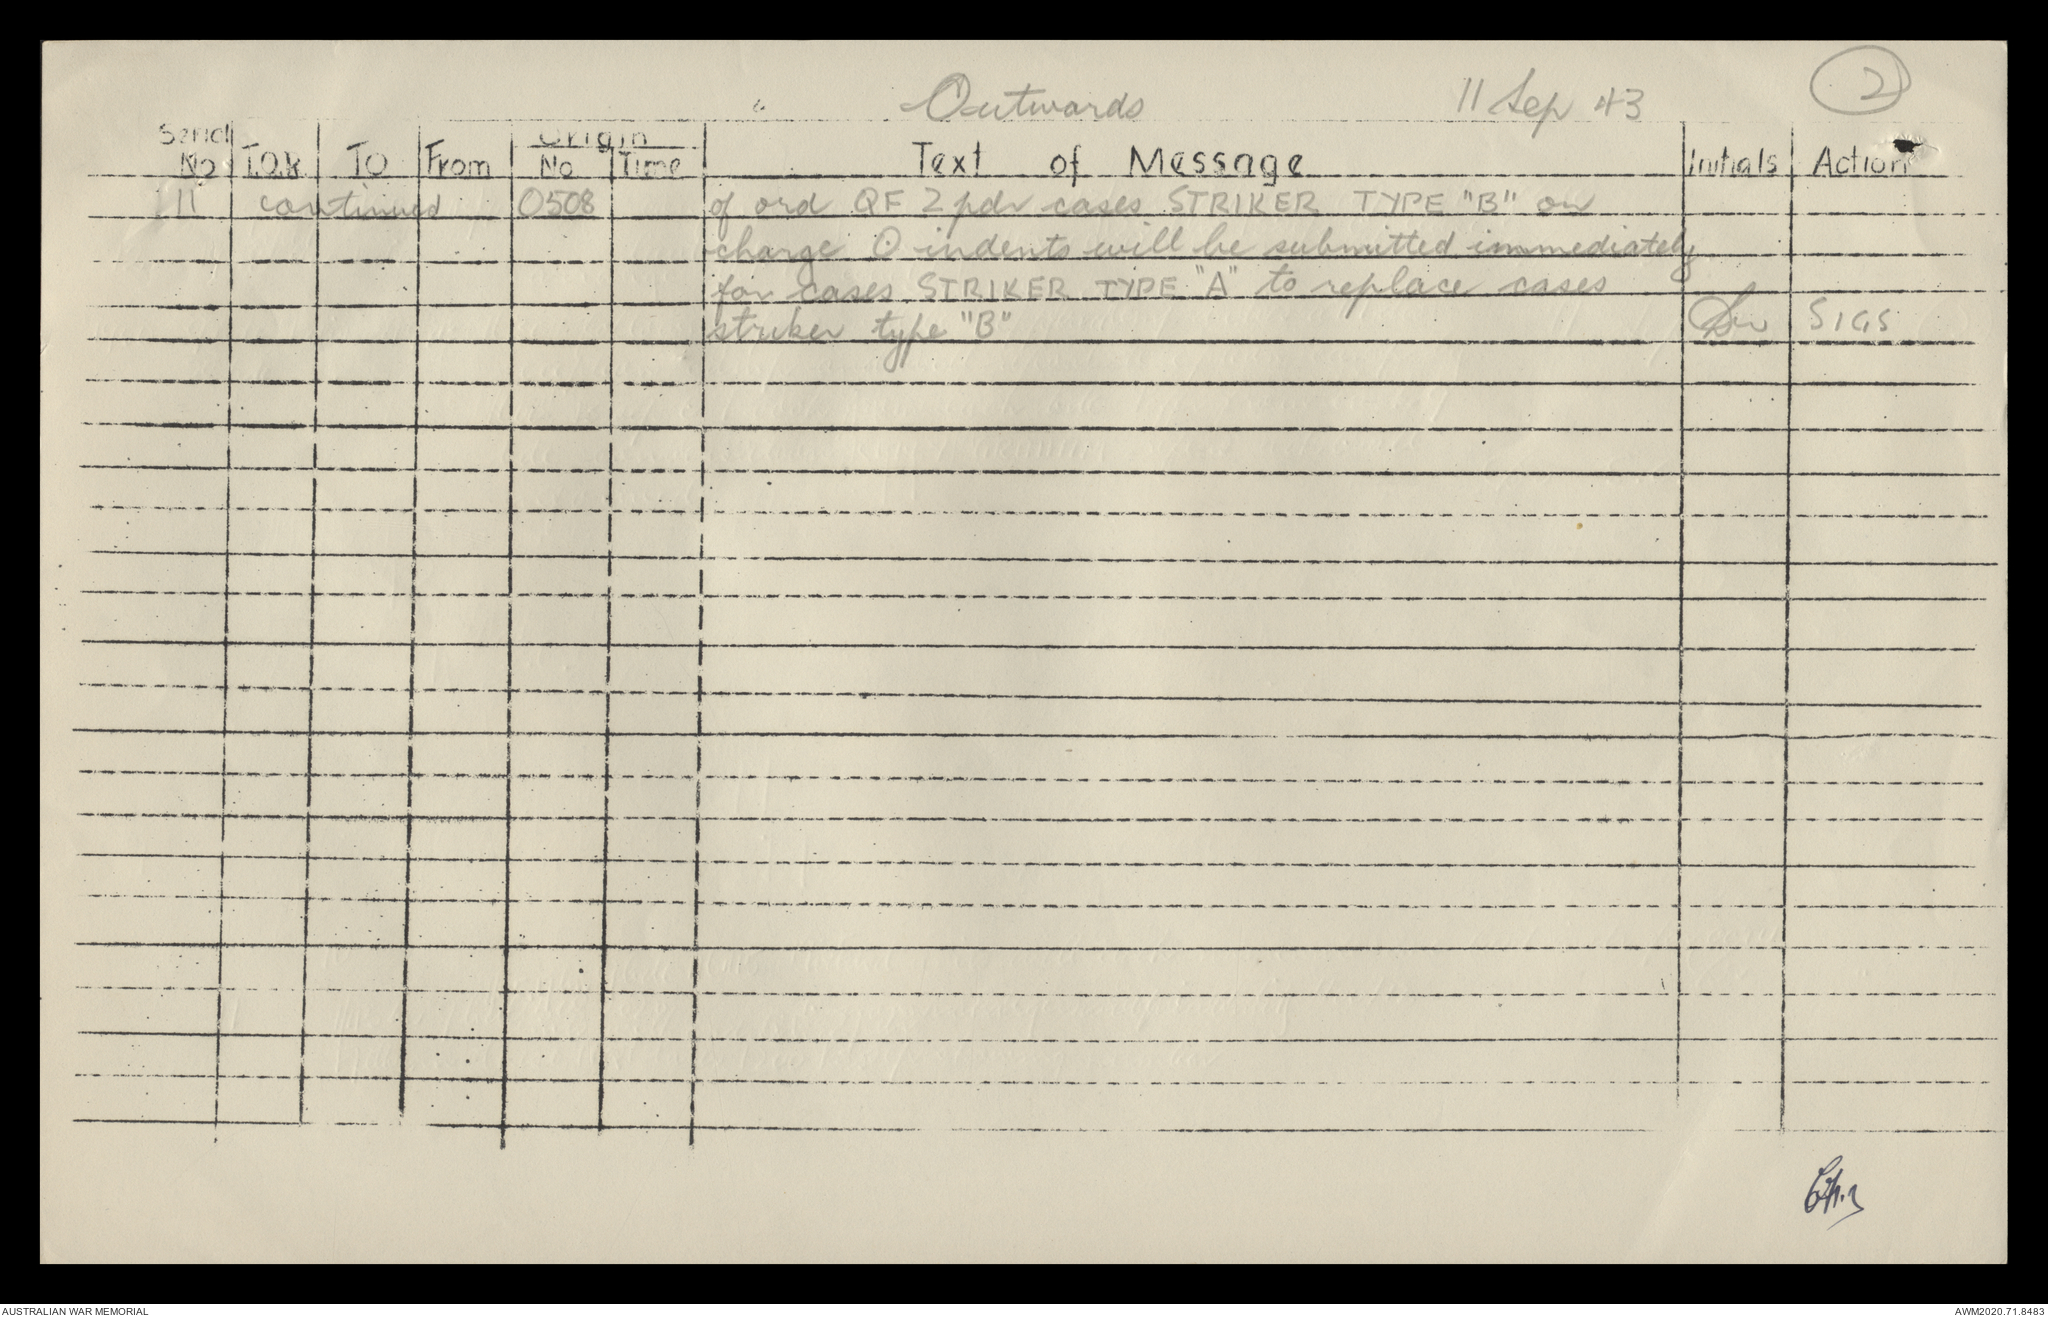 Outwards 11 Sep 43 2
Serial Origin
No T.O.R TO From No Time Text of Message Initials Action
11 continued 0508 of ord QF 2 pdr cases STRIKER TYPE "B" on
charge O indents will be submitted immediately
for cases STRIKER TYPE "A" to replace cases
striker type "B" SIGS
AUSTRALIAN WAR MEMORIAL AWM2020.71.8483